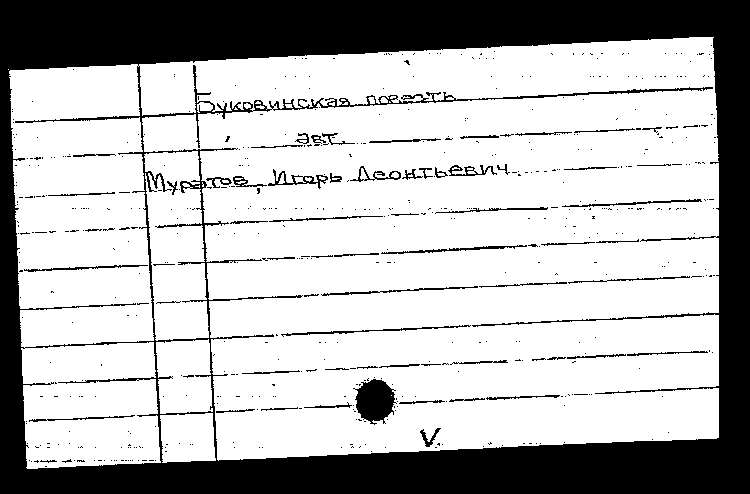 Буковинская повесть
авт.
Муратов, Игорь Леонтьевич.
V